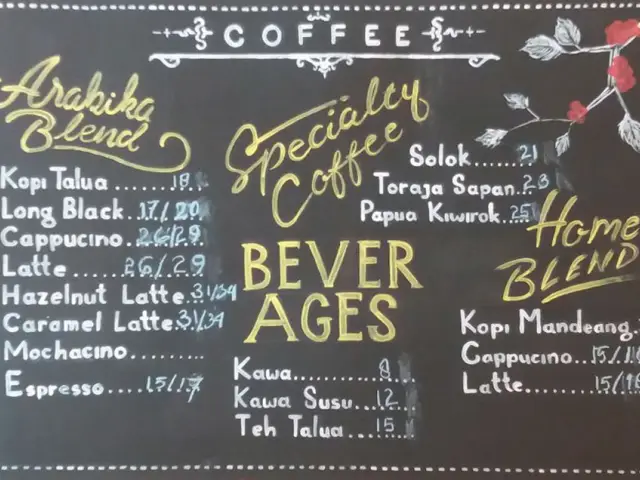 COFFEE
Arabika
Blend
Kopi Talua ....... 18
Long Black. 17/20
Cappucino. 26/29
Latte ...... 26/29
Hazelnut Latte. 31/34
Caramel Latte. 31/34
Mochacino.........
Espresso.... 15/17
Specialty
Coffee
Solok...... 21
Toraja Sapan. 23
Papua Kiwirok... 25
BEVER
AGES
Kawa........... 8
Kawa Susu... 12
Teh Talua... 15
Home
BLEND
Kopi Mandeang
Cappucino... 15/
Latte......... 15/18